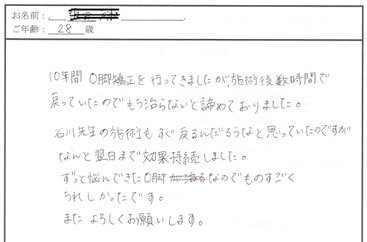 お名前:
ご年齢: 28 歳
10年間 O脚矯正を行ってきましたが、施術後数時間で
戻っていたのでもう治らないと諦めておりました。
石川先生の施術もすぐ戻るんだろうなと思っていたのですが
なんと翌日まで効果持続しました。
ずっと悩んできたO脚なのでものすごく
うれしかったです。
またよろしくお願いします。